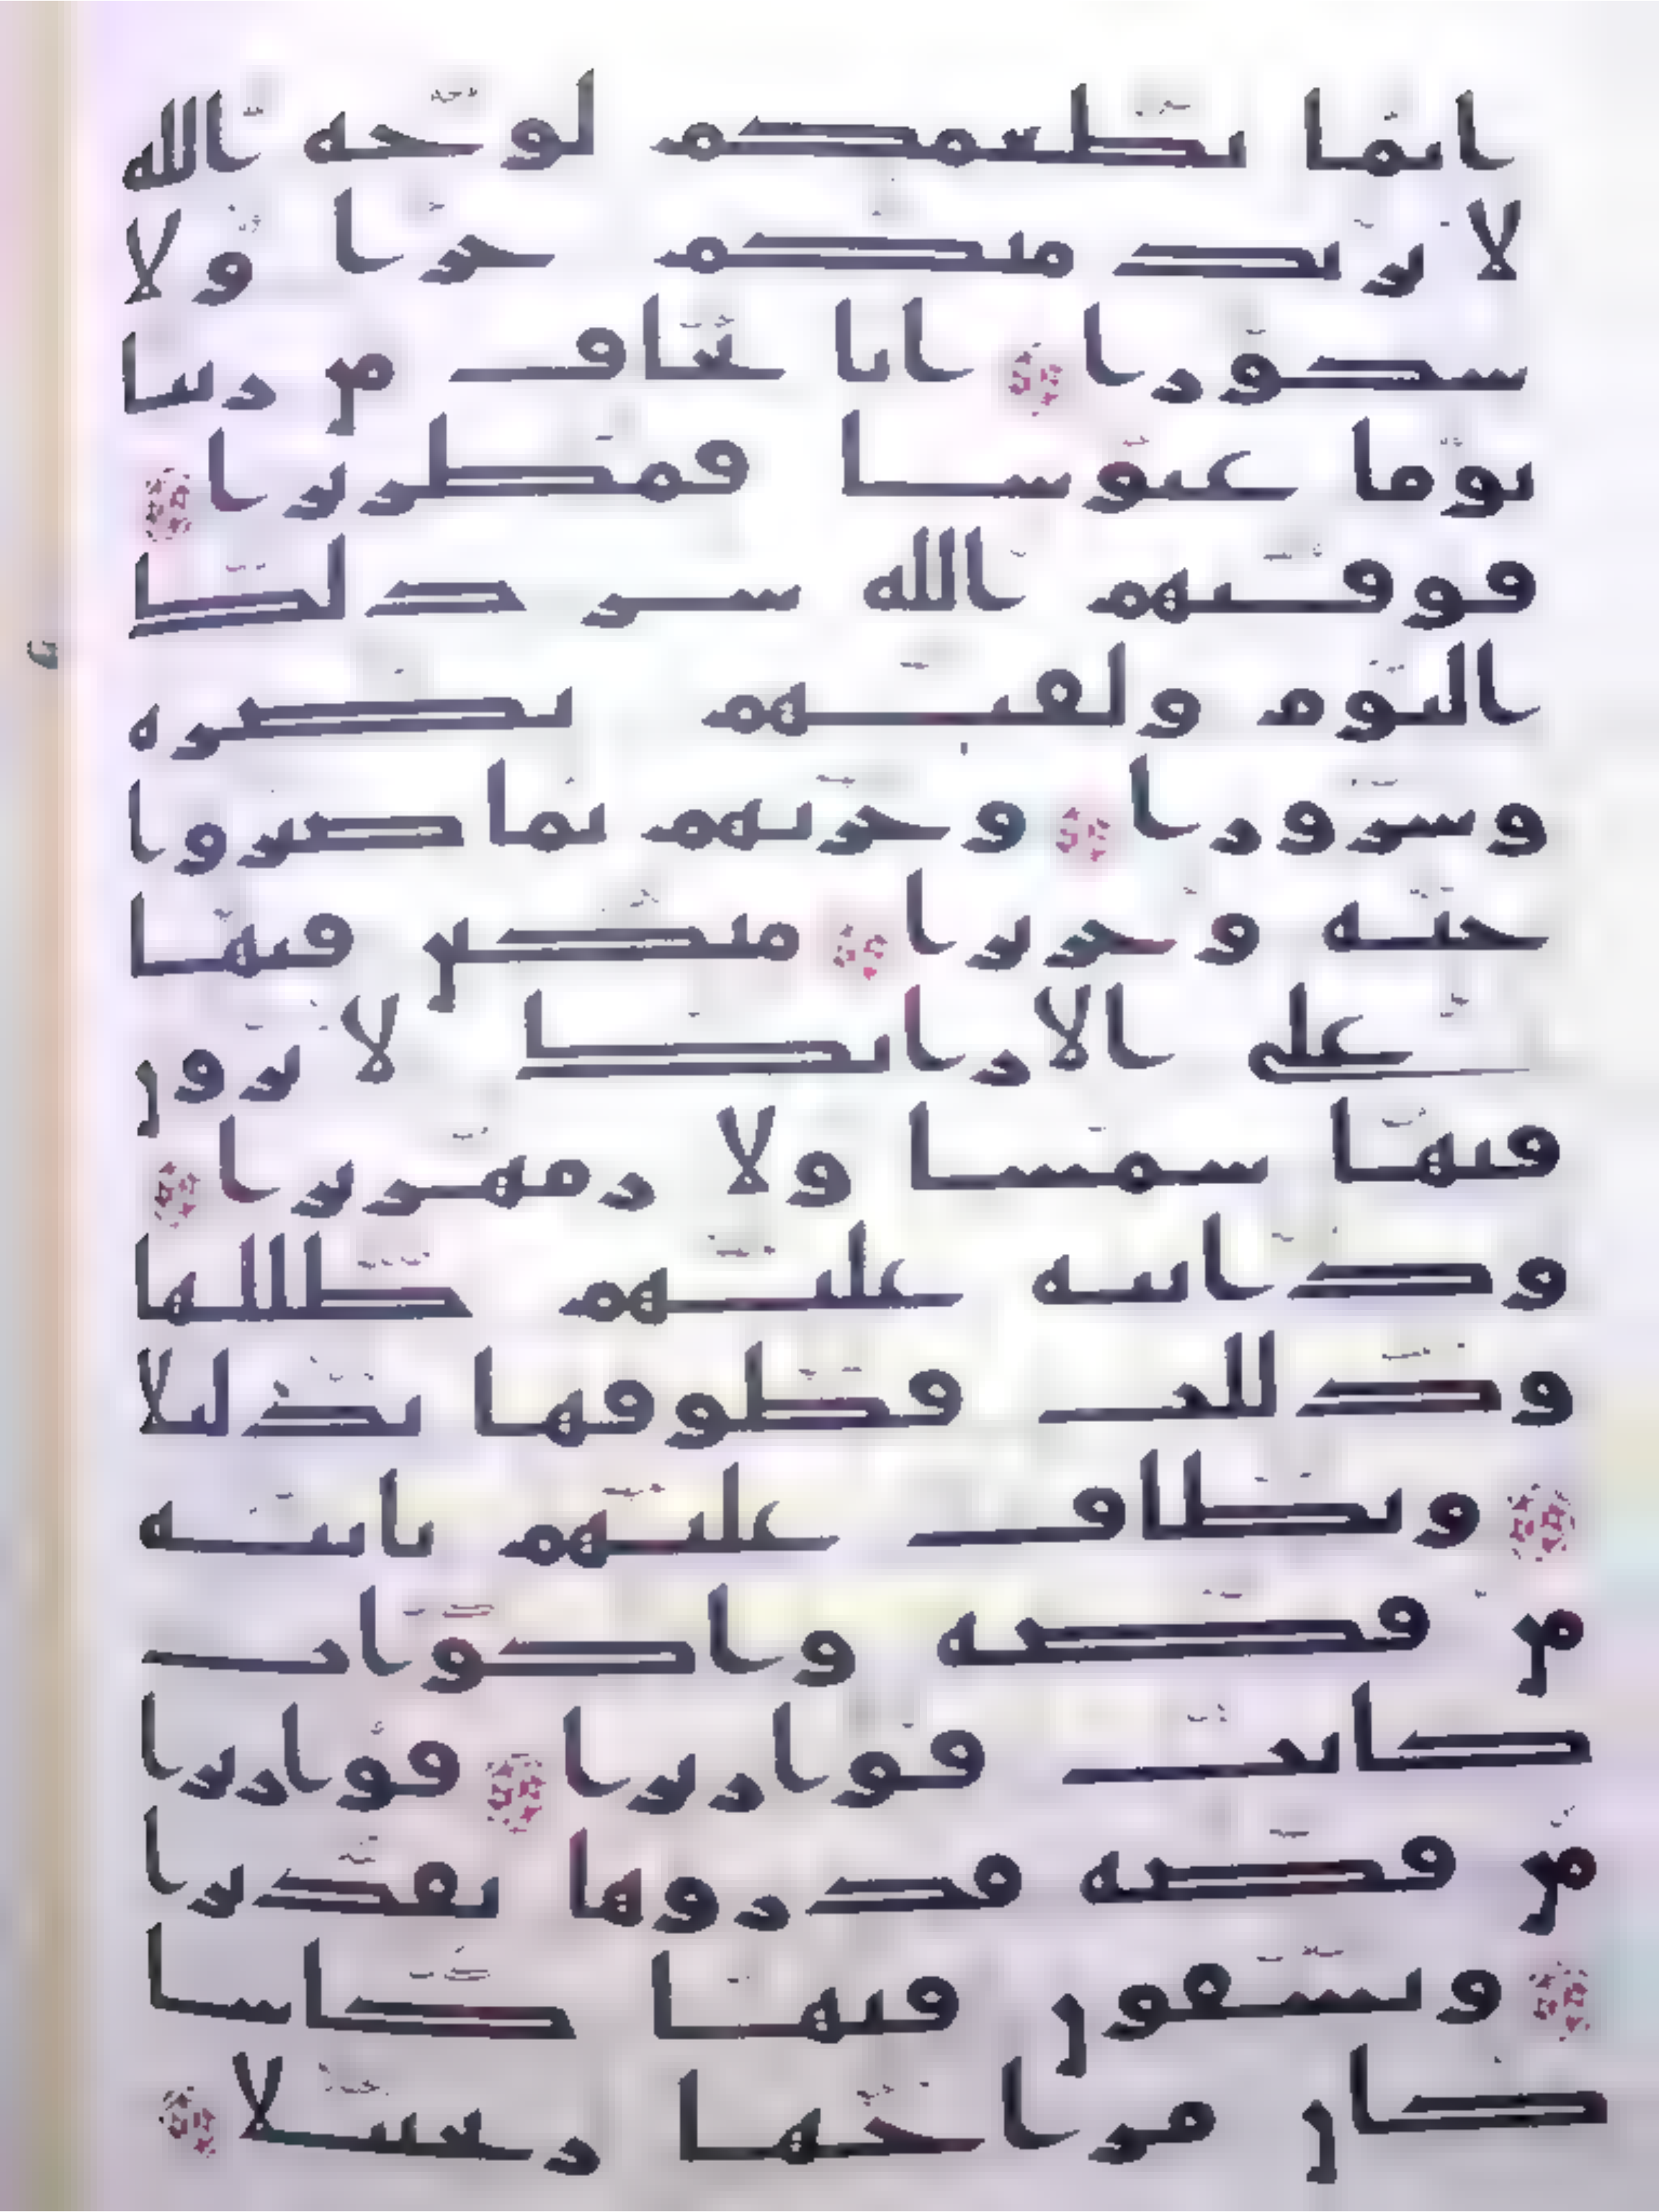 انما نطعمكم لوجه الله
لا نريد منكم جزا ولا
شكورا انا نخاف من ربنا
يوما عبوسا قمطريرا
فوقيهم الله شر ذلك
اليوم ولقيهم نضره
وسرورا وجزيهم بما صبروا
جنه وحريرا متكين فيها
على الارائك لا يرون
فيها شمسا ولا زمهريرا
ودانيه عليهم ظللها
وذللت قطوفها تذليلا
ويطاف عليهم بانيه
من فضه واكواب
كانت قواريرا قواريرا
من فضه قدروها تقديرا
ويسقون فيها كاسا
كان مزاجها زنجبيلا